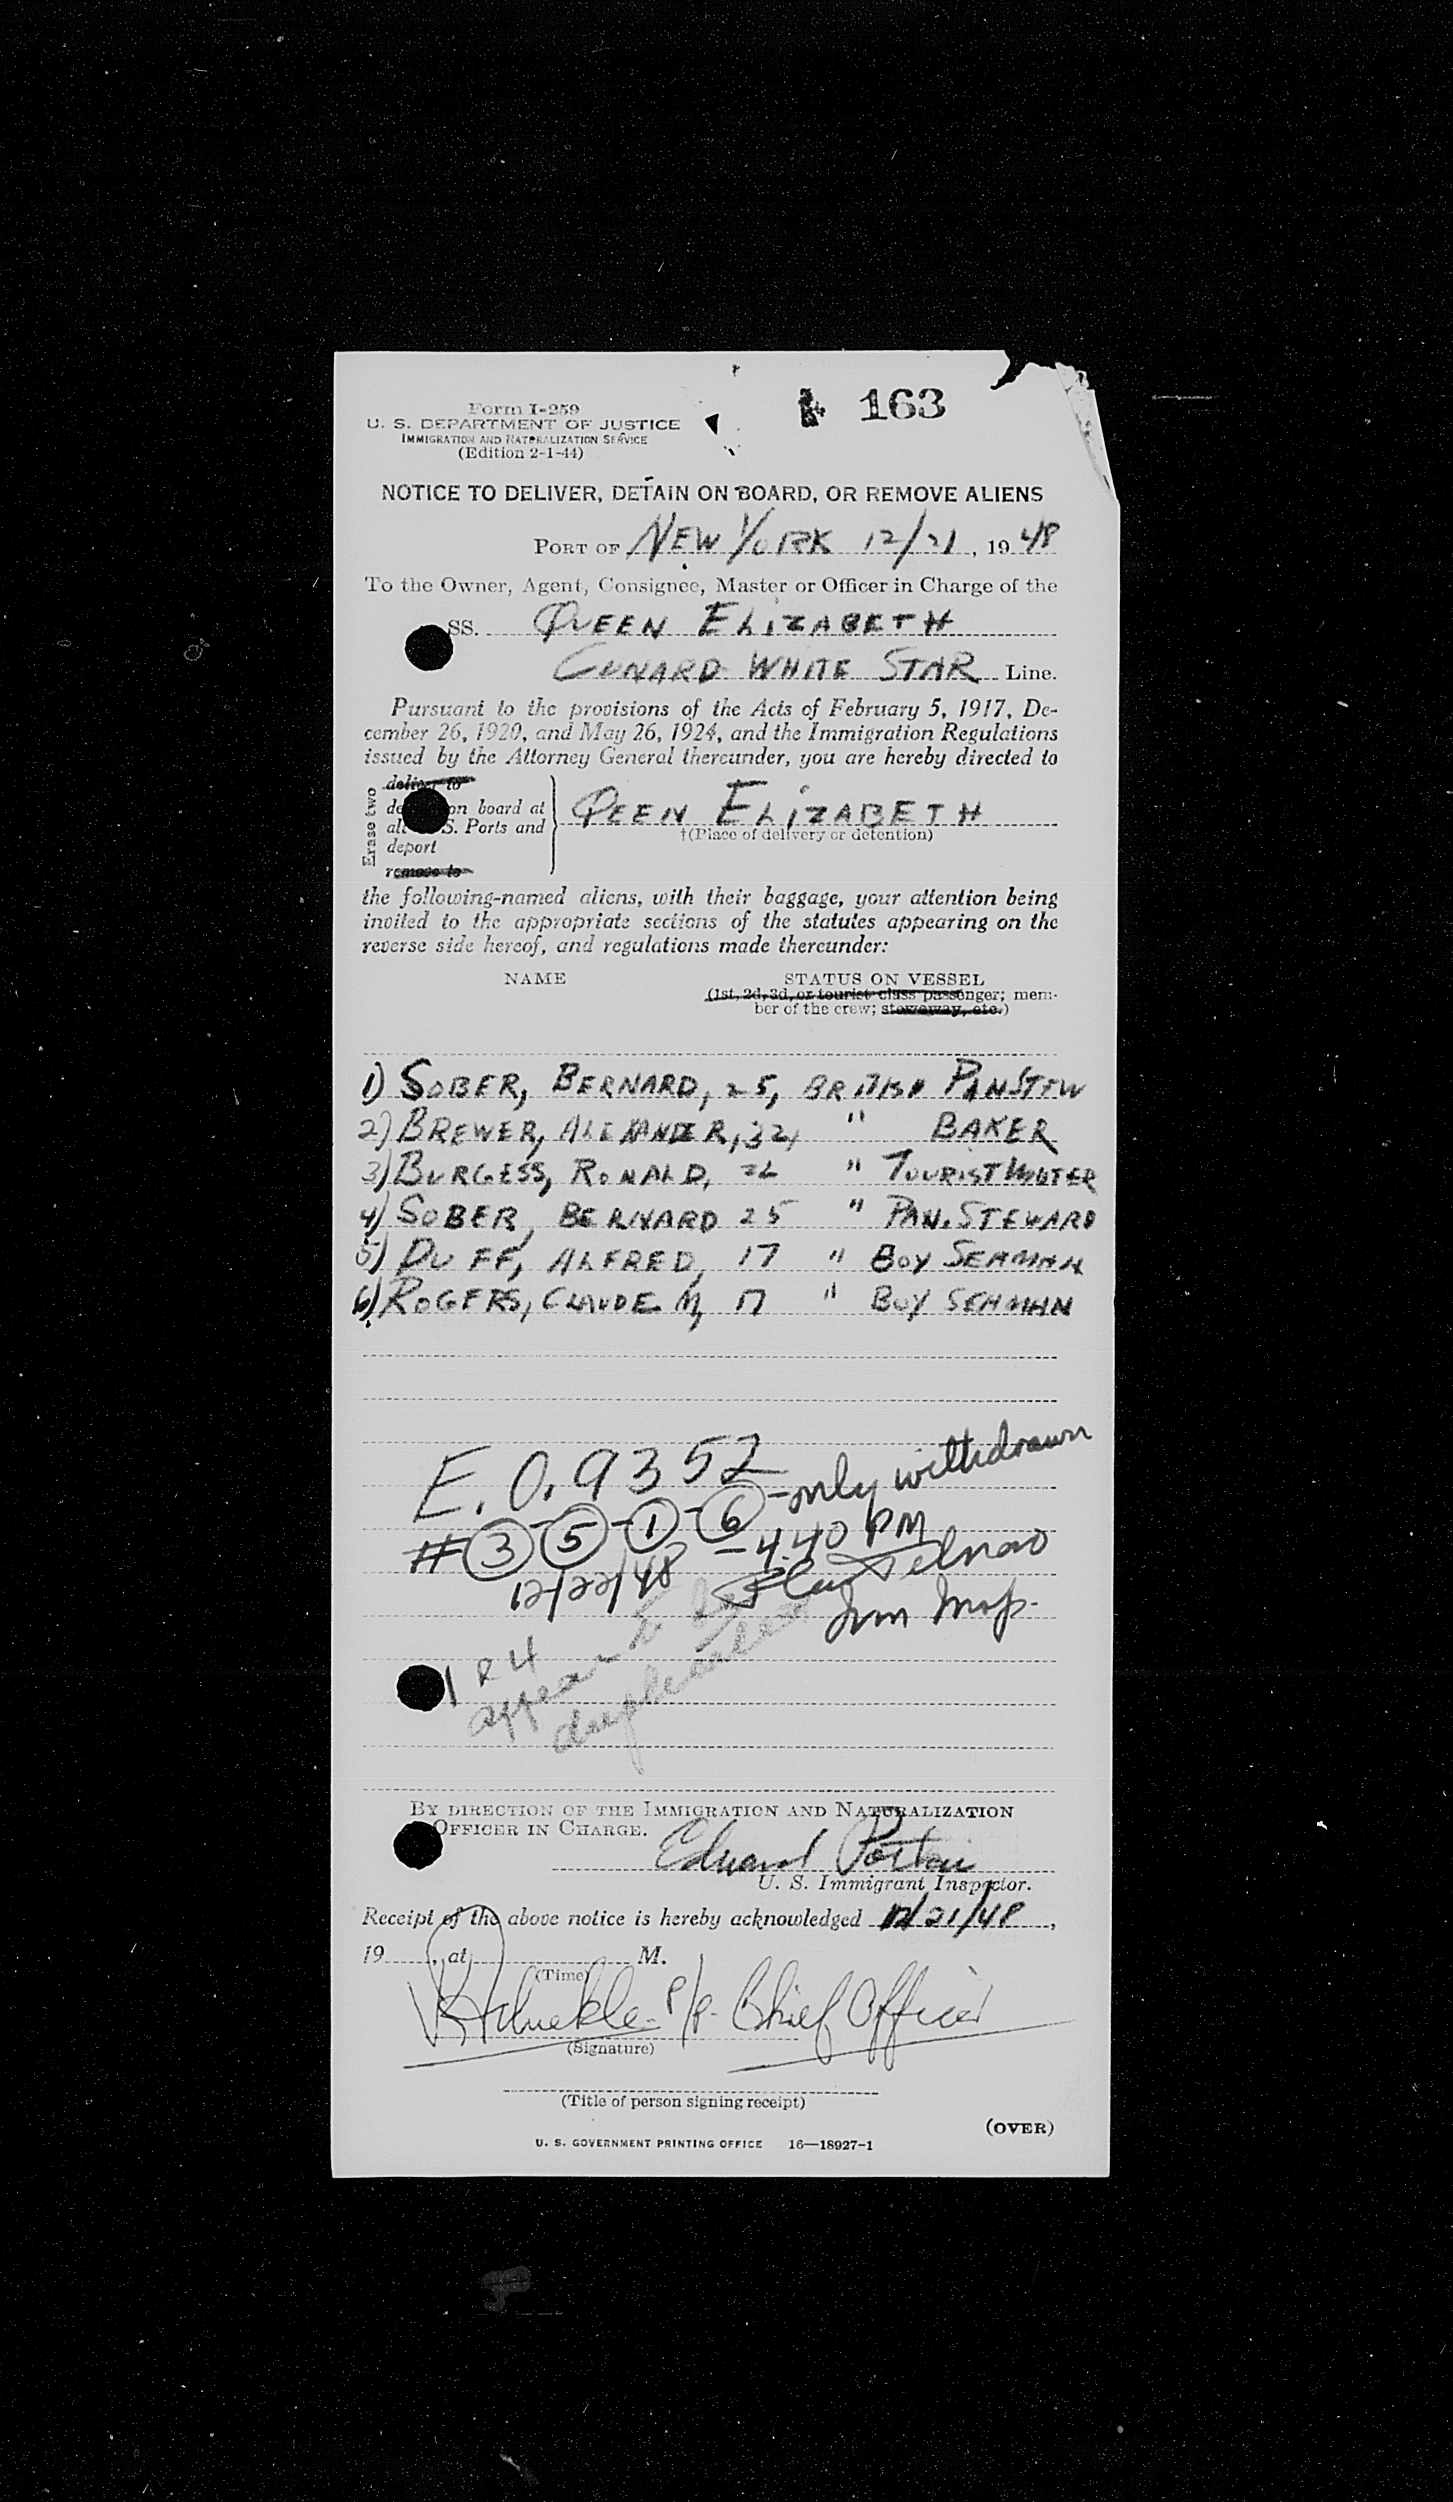 163
Form I-259
U. S. DEPARTMENT OF JUSTICE
IMMIGRATION AND NATURALIZATION SERVICE
(Edition 2-1-44)
NOTICE TO DELIVER, DETAIN ON BOARD, OR REMOVE ALIENS
PORT OF NEW YORK 12/21, 1948
To the Owner, Agent, Consignee, Master or Officer in Charge of the
SS. QUEEN ELIZABETH
CUNARD WHITE STAR Line.
Pursuant to the provisions of the Acts of February 5, 1917, De-
cember 26, 1920, and May 26, 1924, and the Immigration Regulations
issued by the Attorney General thereunder, you are hereby directed to
Erase two
deliver to
on board at
S. Ports and
deport
remove to
QEEN ELIZABETH
†(Place of delivery or detention)
the following-named aliens, with their baggage, your attention being
invited to the appropriate sections of the statutes appearing on the
reverse side hereof, and regulations made thereunder:
NAME STATUS ON VESSEL
(1st, 2d, 3d, or tourist class passenger; mem-
ber of the crew; stowaway, etc.)
1) SOBER, BERNARD, 25, BRITISH PANSTEW
2) BREWER, ALEXANDER, 32, " BAKER
3) BURGESS, RONALD, 22 " TOURIST WAITER
4) SOBER, BERNARD 25 " PAN. STEWARD
5) DUFF, ALFRED, 17 " BOY SEAMAN
6) ROGERS, CLAUDE M, 17 " BOY SEAMAN
E. O. 9352
# 3 - 5 - 1 - 6 - only withdrawn
12/22/48 - 4.40 PM
Imm Insp.
1 & 4
appear to be
duplication
BY DIRECTION OF THE IMMIGRATION AND NATURALIZATION
OFFICER IN CHARGE.
Edward
U. S. Immigrant Inspector.
Receipt of the above notice is hereby acknowledged 12/21/48,
19 , at M.
(Time)
P/P. Chief Officer
(Signature)
(Title of person signing receipt)
(OVER)
U. S. GOVERNMENT PRINTING OFFICE 16—18927-1